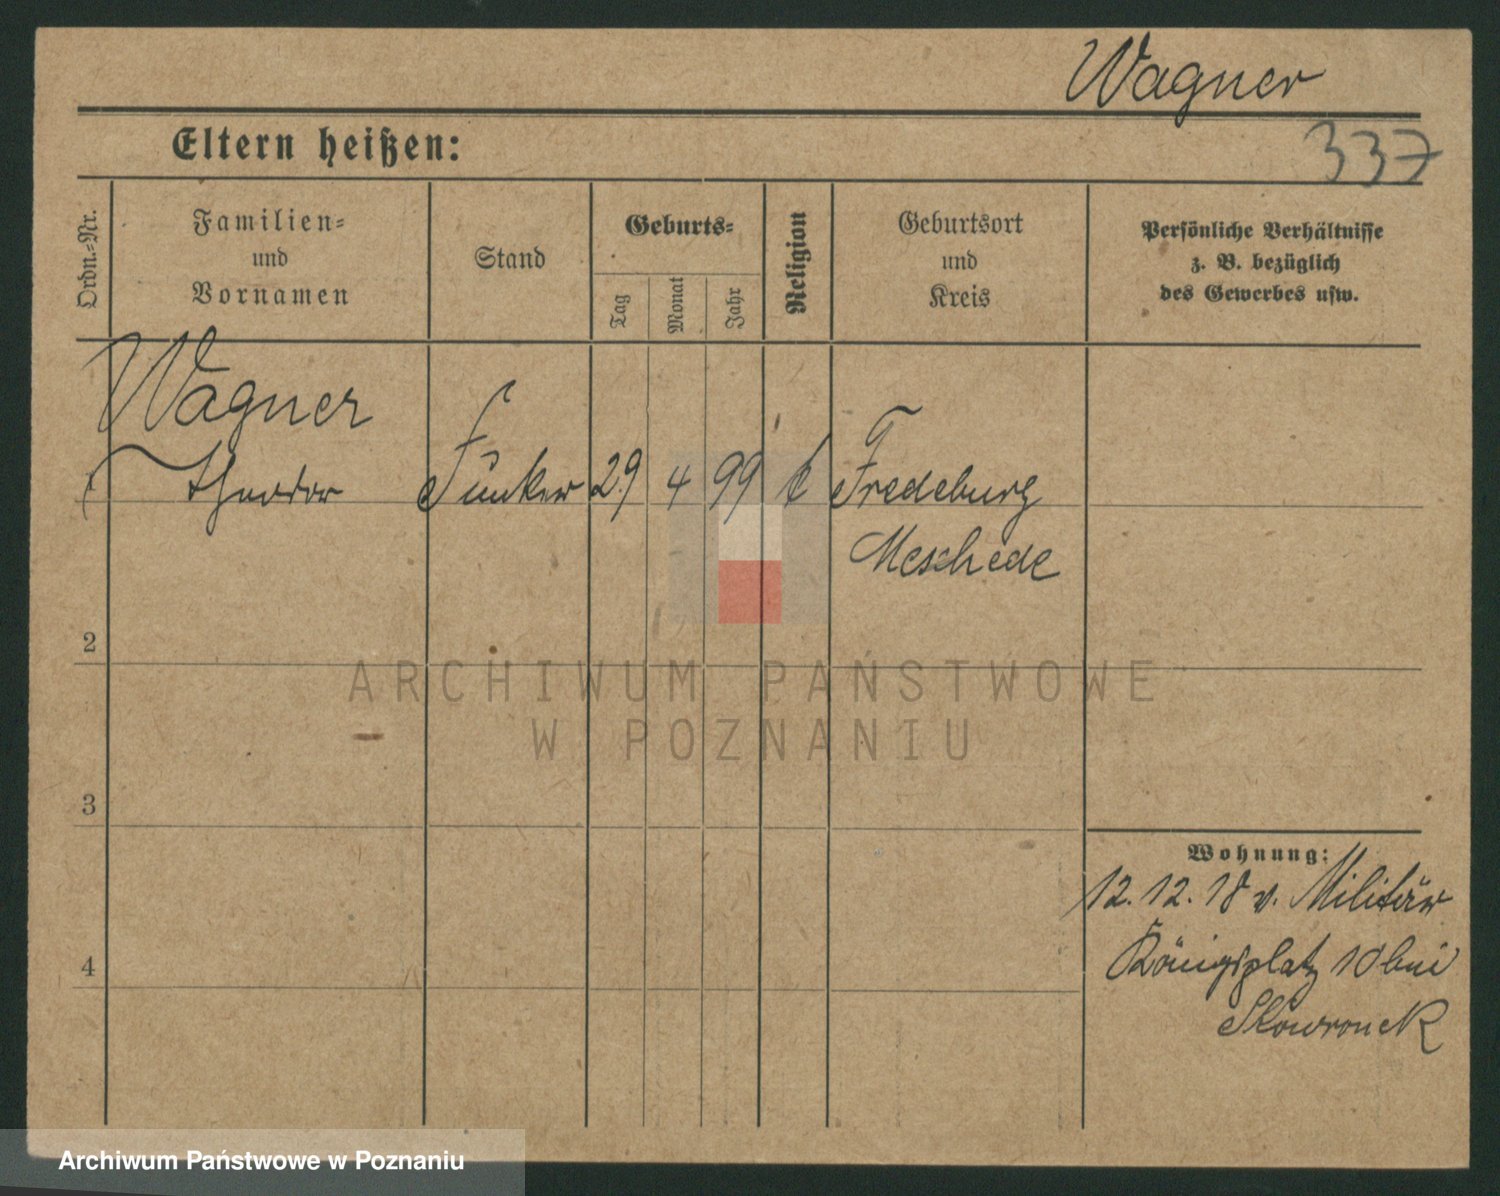 Wagner
Eltern heißen:
337
Ordn.-Nr.
Familien-
und
Vornamen
Stand
Geburts-
Tag
Monat
Jahr
Religion
Geburtsort
und
Kreis
Persönliche Verhältnisse
z. B. bezüglich
des Gewerbes usw.
Wagner
1 Theodor Funker 29 4 99 k Fredeburg
Meschede
2
3
4
Wohnung:
12.12.18 v. Militär
Königsplatz 10 bei
Skowronek
ARCHIWUM PAŃSTWOWE
W POZNANIU
Archiwum Państwowe w Poznaniu